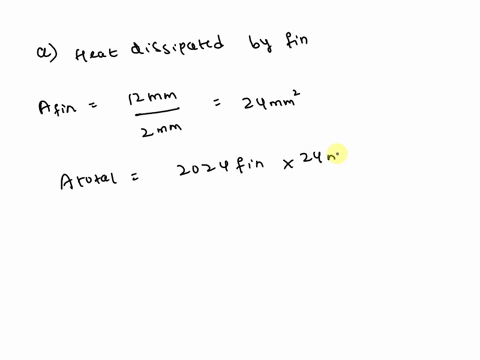 a) Heat dissipated by fin
Afin = 12mm / 2mm = 24mm²
Atotal = 2024 fin × 24 m